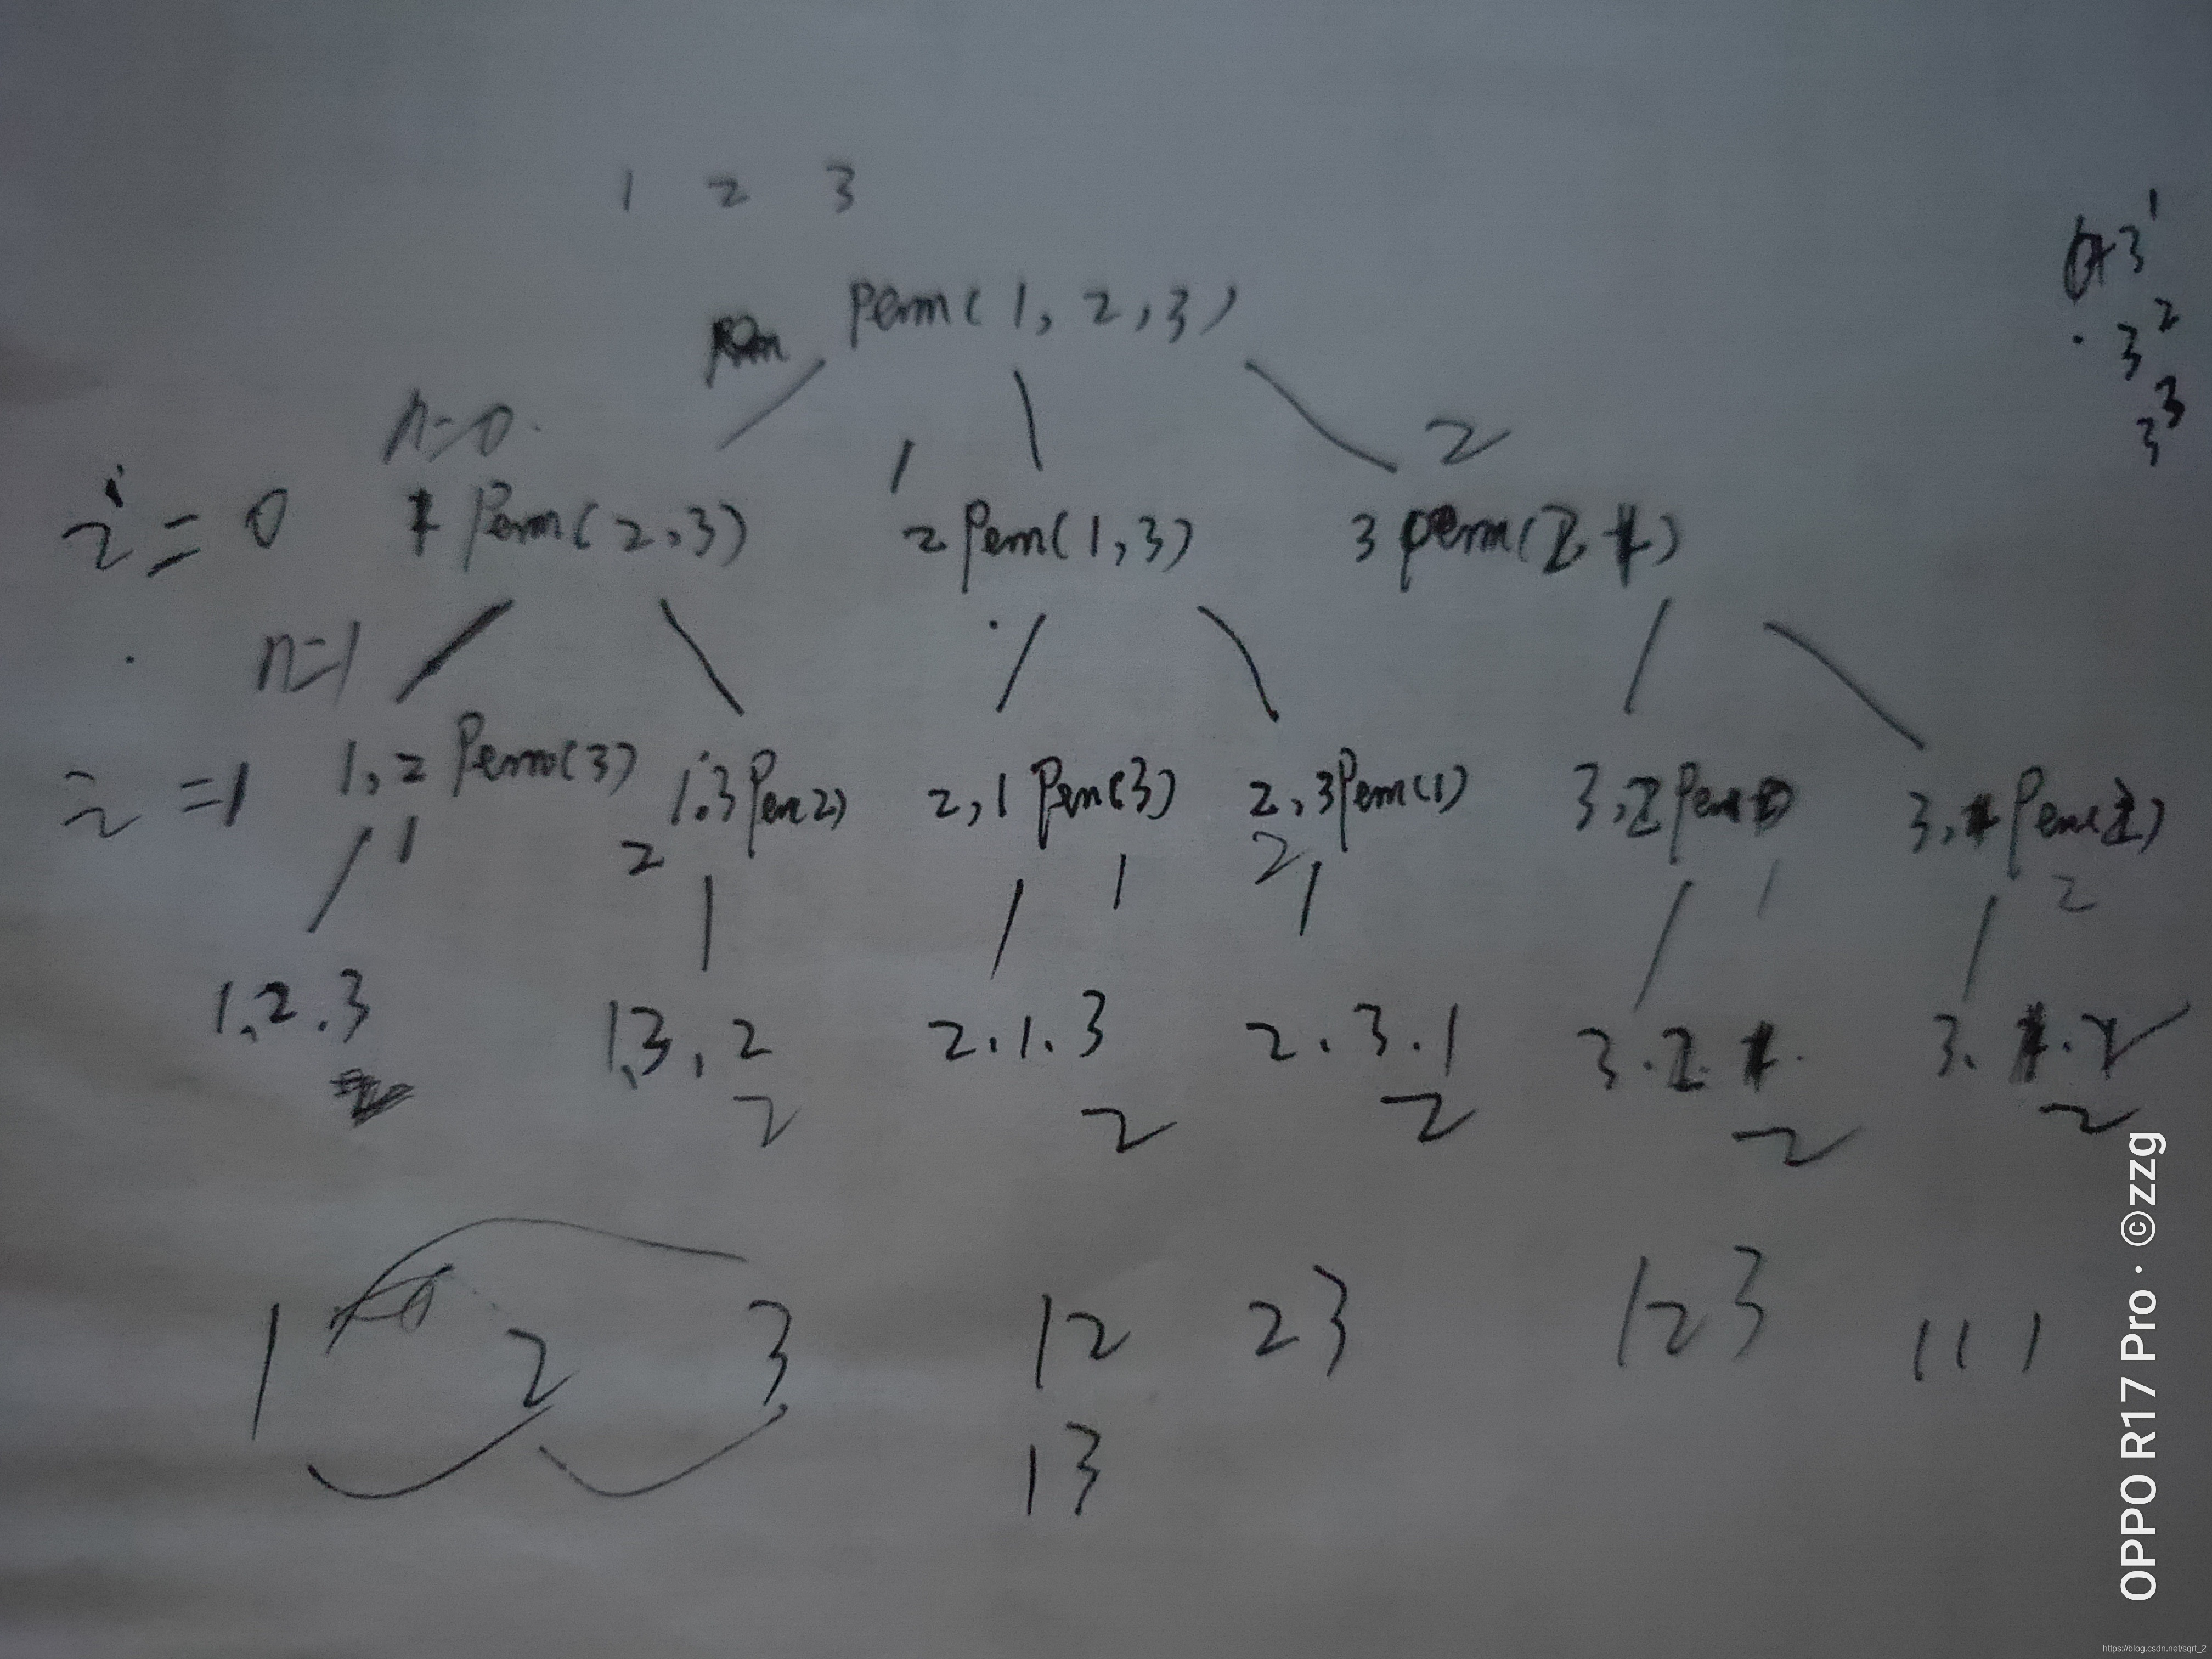 1 2 3
3 1
Perm(1, 2, 3)
3 2
n=0
1 2
3 3
i = 0 1 Perm(2,3) 2 Perm(1,3) 3 Perm(2,1)
n=1
i =1 1,2 Perm(3) 1,3 Per(2) 2,1 Perm(3) 2,3 Perm(1) 3,2 Perm 3,1 Perm(2)
1 2 1 2 1 2
1,2.3 1,3,2 2.1.3 2.3.1 3.2.1. 3.1.2
2 2 2 2 2
1 2 3 12 23 123 111
13
OPPO R17 Pro · ©zzg
https://blog.csdn.net/sqrt_2